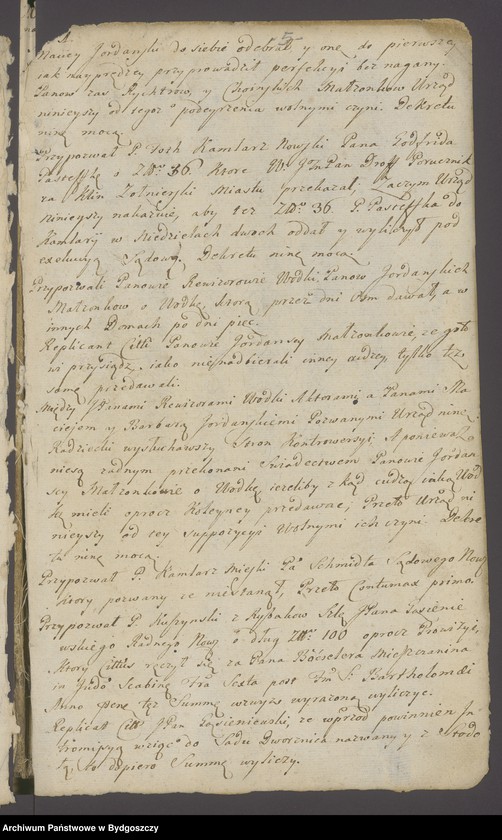 Maciey Jordański do siebie odebrał y one do pierwszey
iak nayprędzey przyprowadził perfekcyi bez nagany.
Panow zas Rychtrow, y Małzonkow Urząd
ninieyszy od tegoz podeyrzenia wolnymi czyni. Dekretu
ninẽ mocą.
Przypozwał P. Kamlarz Nowski Pana Godfrida
o Złł. 36. ktore Pan Porucznik
za Zołnierski Miastu przekazał, Zaczym Urząd
ninieyszy nakazuie, aby tez Złł. 36. P. do
Kamlaryi w Niedzielach dwoch oddał y wyliczył pod
exekucyą Sądową Dekretu ninẽ mocą.
Przypozwali Panowie Rewizorowie Wodki, Panow Jordańskich
Małzonkow o Wodkę, ktorą przez dni dawał, a w
innych Domach po dni pięc.
Replicant Citti Panowie Jordanscy Małzonkowie, ze goto
wi przysiądz, iako nie nadbierali inney cudzey, tylko tez
samę przedawali.
Między Panami Rewizorami Wodki Aktorami, a Panami Ma
ciejem y Barbarą Jordanskiemi Pozwanymi Urząd ninẽ
Radziecki wysłuchawszy Stron Kontrowersyi, A poniewaz
niesą zadnym przekonani Swiadectwem Panowie Jordan
scy Małzonkowie o Wodkę, iezeliby z kąd cudzą iaką Wod
kę mieli oprocz Koleyney przedawac, Przeto Urząd ni
nieyszy od tey suppozycyi Wolnymi ich czyni. Dekre
tu ninẽ mocą.
Przypozwał P. Kamlarz Mieyski Pa Schmidta Sądowego Now
ktory pozwany ze niestanął, Przeto Contumax primo.
Przypozwał P. z Rybakow Szl. JPana Łasienie
wskiego Radnego Now o dług Złł. 100 oprocz Prowizyi,
ktory Cittus ręczył się za Pana Mieszczanina
in Judo Scabinẽ Fra Sexta post Fm S. Bartholomæi
Anno pssnẽ też Summę wzwysz wyrazoną wyliczyc.
Replicat Citt JPan Łasieniewski, ze wprzod powinnien
wziąc do Sądu Dworznica nazwany y z Stodo
łą, to dopiero Summę wyliczy.
Archiwum Państwowe w Bydgoszczy